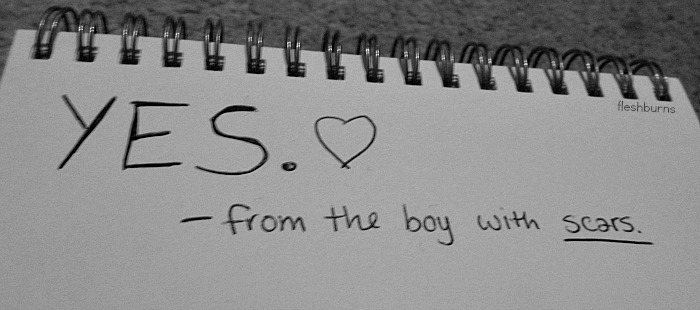 fleshburns
YES. ♡
– from the boy with scars.